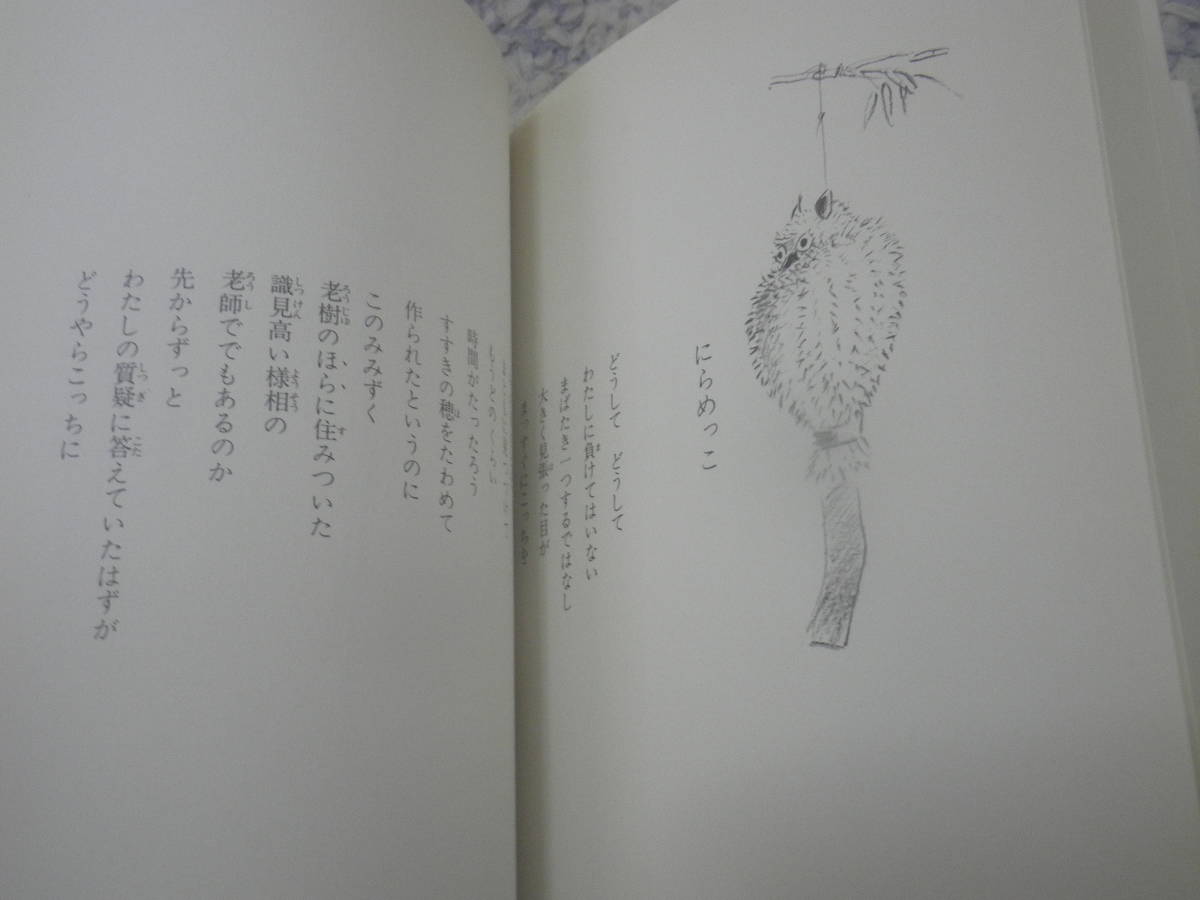 にらめっこ
どうして　どうして
わたしに負けてはいない
まばたき一つするではなし
大きく見張った目が
まっすぐにこっちを
もうどのくらい
時間がたったろう
すすきの穂をたわめて
作られたというのに
このみみずく
老樹のほらに住みついた
識見高い様相の
老師ででもあるのか
先からずっと
わたしの質疑に答えていたはずが
どうやらこっちに